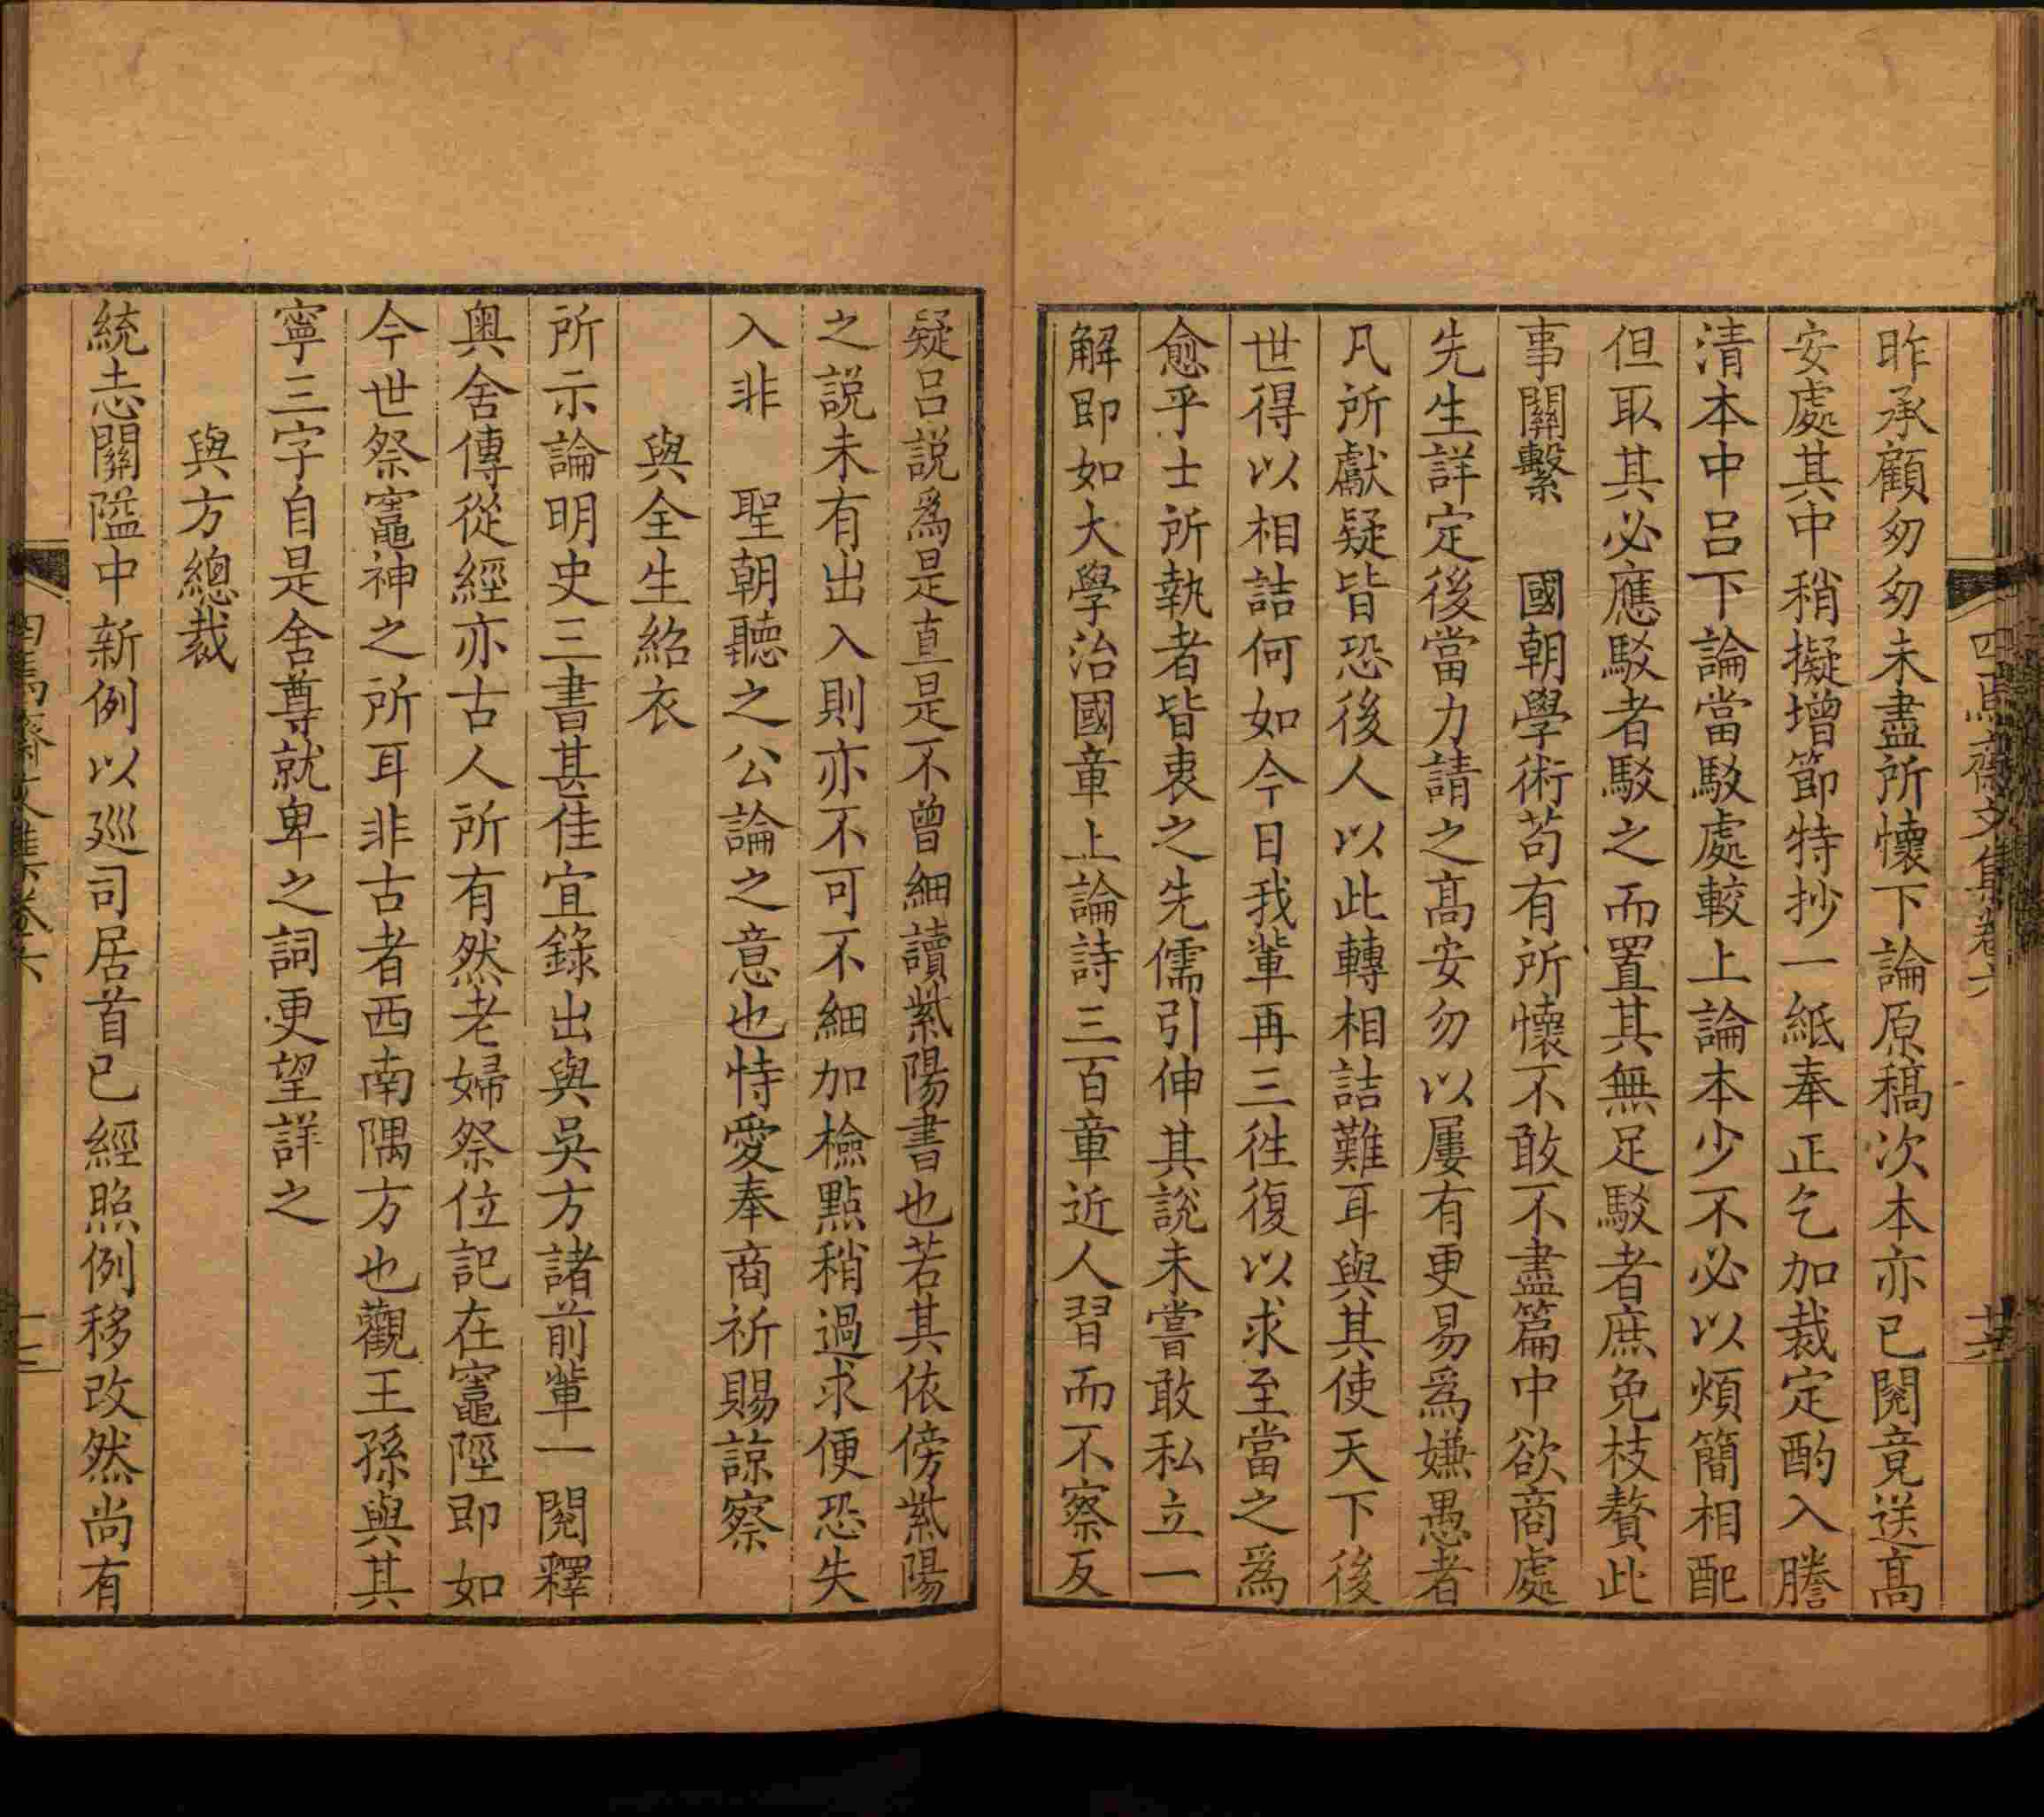 昨承顧匆匆未盡所懷下論原稿次本亦已閱竟送髙
安處其中稍擬增節特抄一紙奉正乞加裁定酌入謄
清本中呂下論當駁處較上論本少不必以煩簡相配
但取其必應駁者駁之而置其無足駁者庶免枝贅此
事關繫　國朝學術苟有所懷不敢不盡篇中欲商處
先生詳定後當力請之髙安勿以屢有更易爲嫌愚者
凡所獻疑皆恐後人以此轉相詰難耳與其使天下後
世得以相詰何如今日我輩再三徃復以求至當之爲
愈乎士所執者皆衷之先儒引伸其說未嘗敢私立一
解即如大學治國章上論詩三百章近人習而不察反
疑呂説爲是直是不曾細讀紫陽書也若其依傍紫陽
之説未有出入則亦不可不細加檢點稍過求便恐失
入非　聖朝聽之公論之意也恃愛奉商祈賜諒察
與全生紹衣
所示論明史三書甚佳宜錄出與吳方諸前輩一閱釋
奥舍傳從經亦古人所有然老婦祭位記在竈陘即如
今世祭竈神之所耳非古者西南隅方也觀王孫與其
寧三字自是舍尊就卑之詞更望詳之
與方總裁
統志關隘中新例以廵司居首已經照例移改然尚有
四焉齋文集卷六